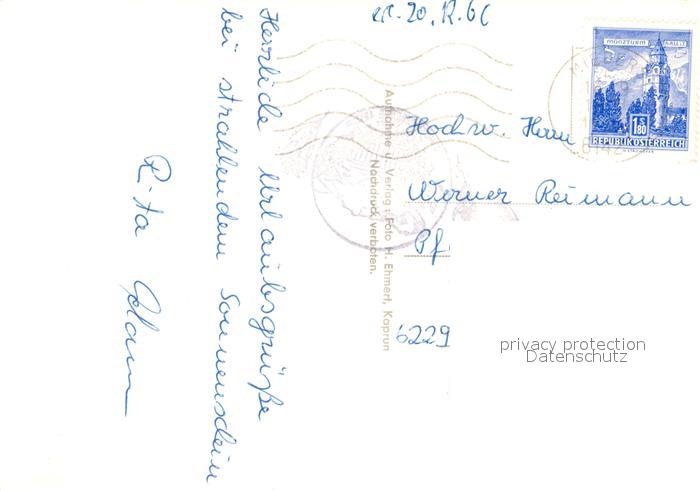 Herzliche Urlaubsgrüße
bei strahlendem Sonnenschein
Rita
Aufnahme u. Verlag: Foto H. Ehmert, Kaprun
Nachdruck verboten.
MÜNZTURM HALL I.T.
S
1.80
REPUBLIK ÖSTERREICH
Hochw. Herrn
Werner Reimann
Pf
6229
privacy protection
Datenschutz